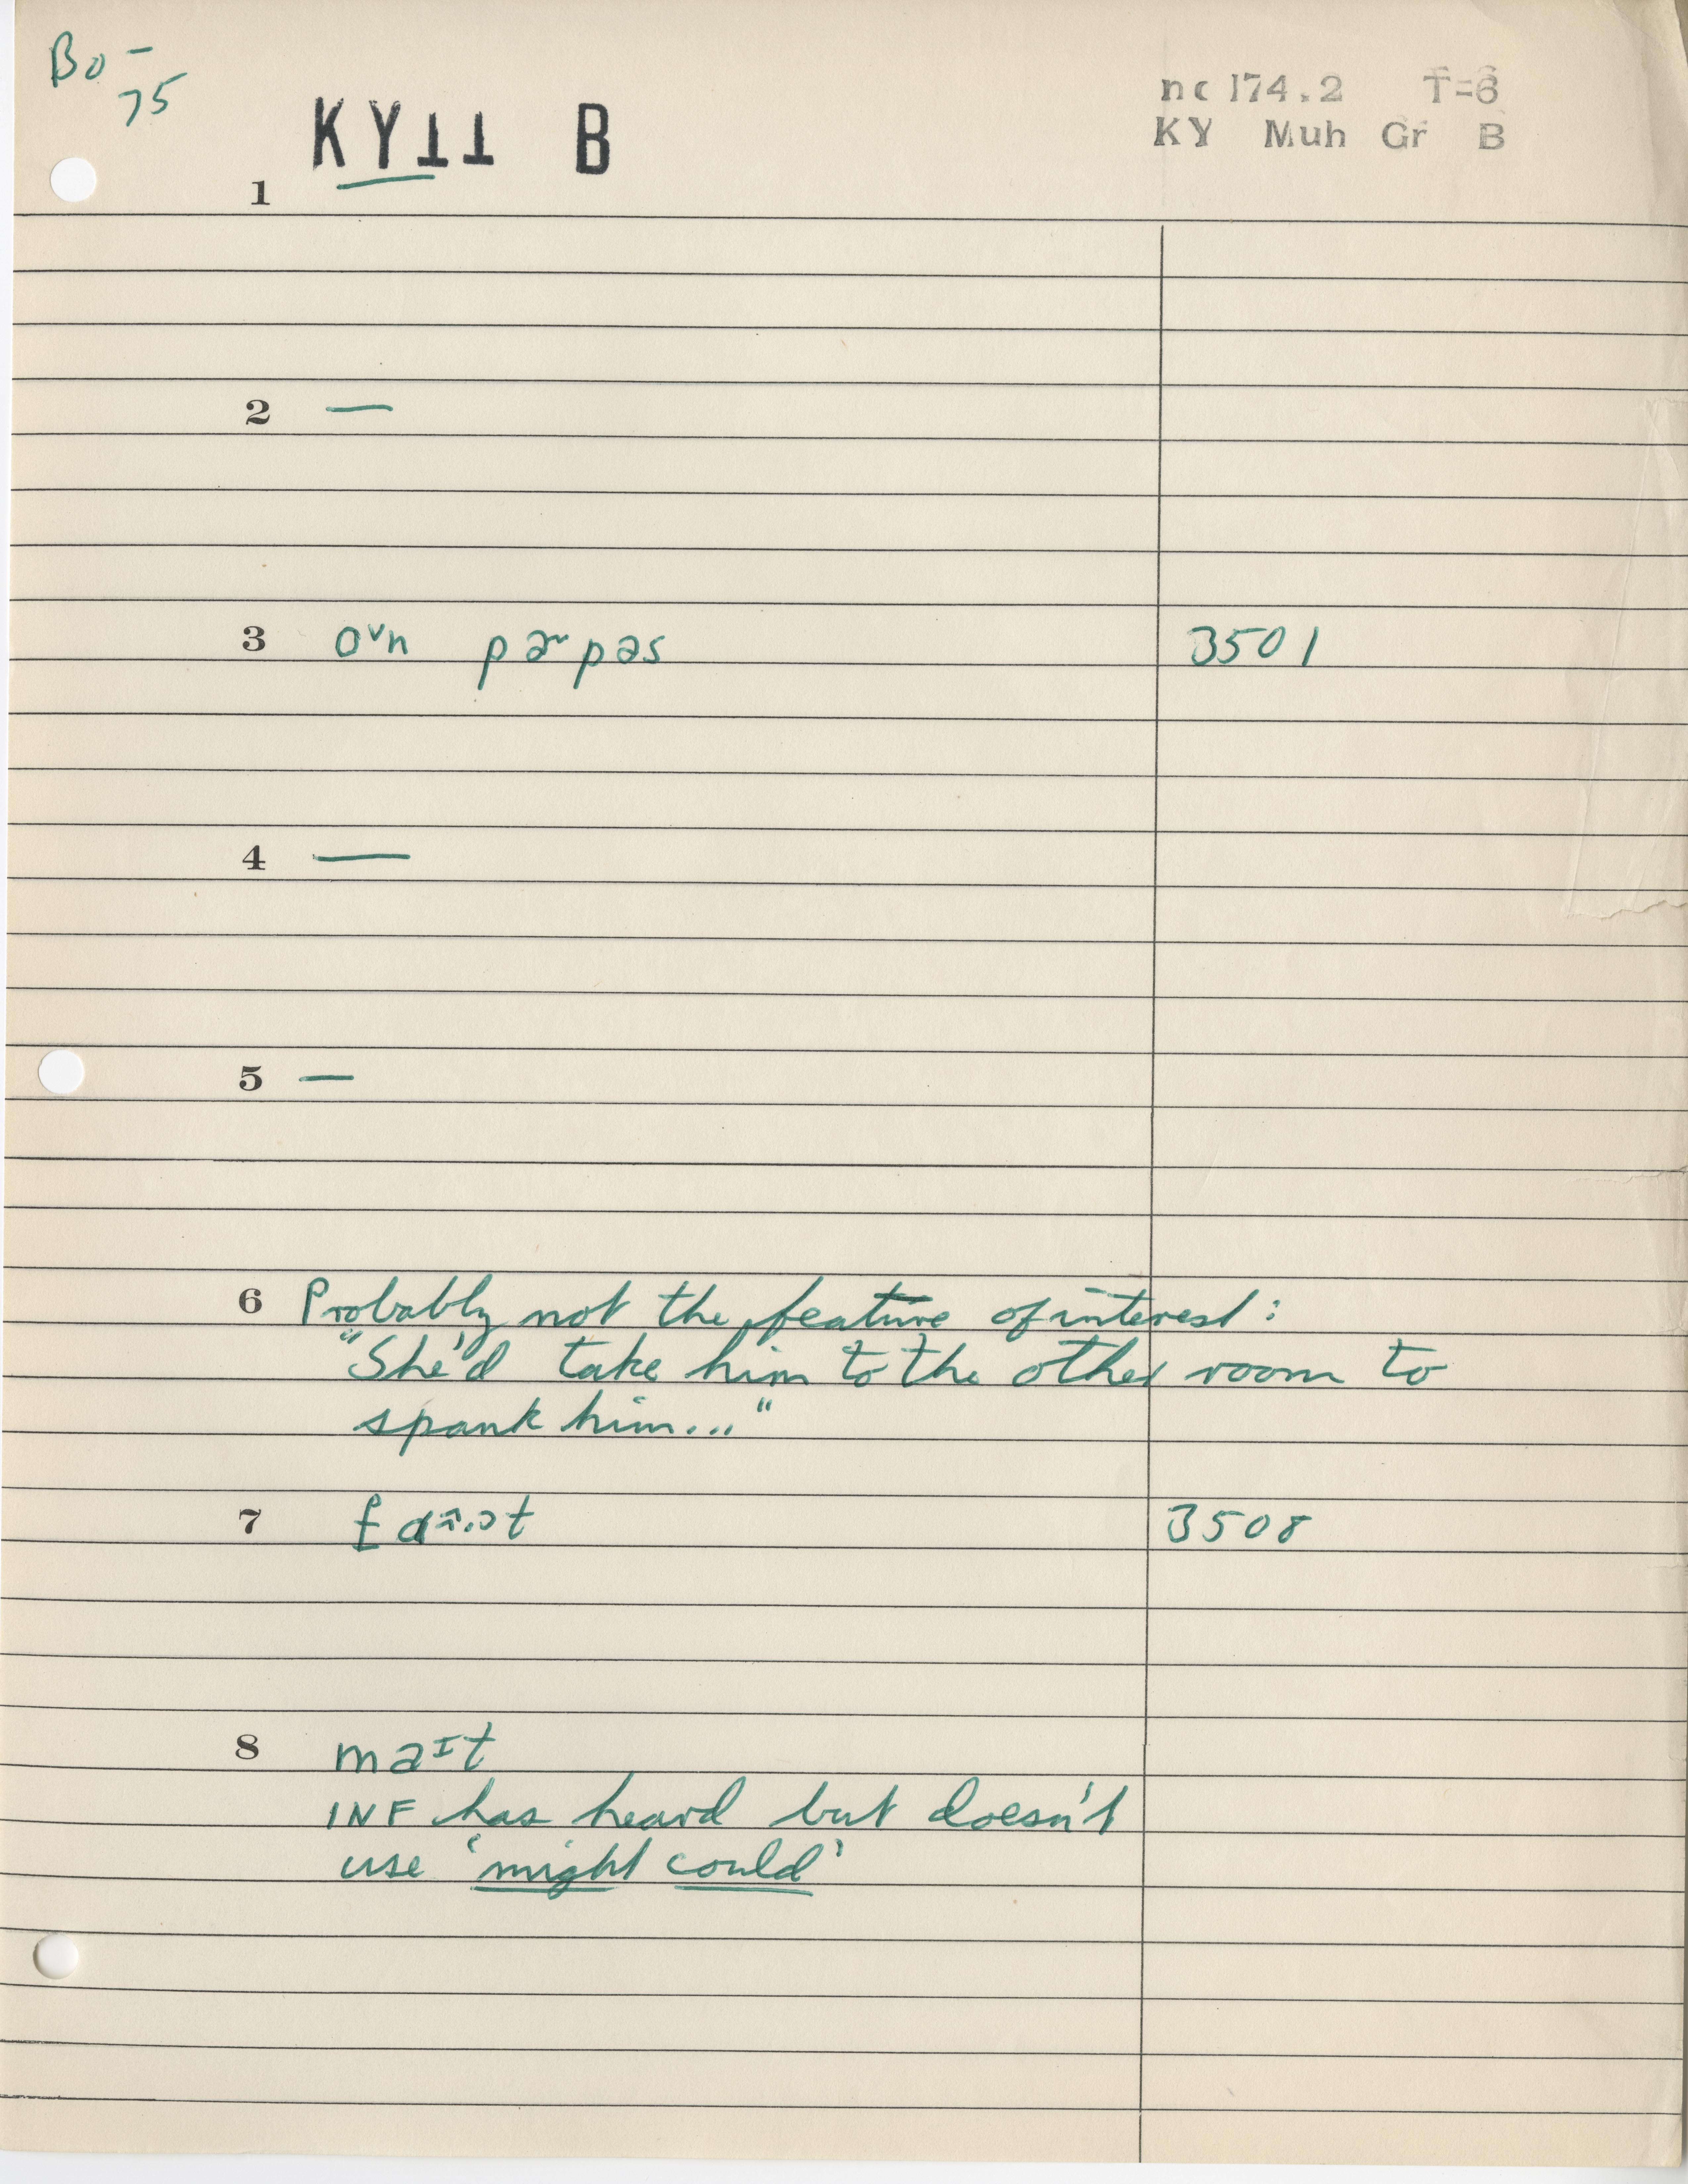 Bo-
75
KY11 B
nc 174.2 T=6
KY Muh Gr B
1
2 —
3 oᵛn pɚpəs 3501
4 —
5 —
6 Probably not the feature of interest:
"She'd take him to the other room to
spank him..."
7 3508
8 maɪt
INF has heard but doesn't
use 'might could'